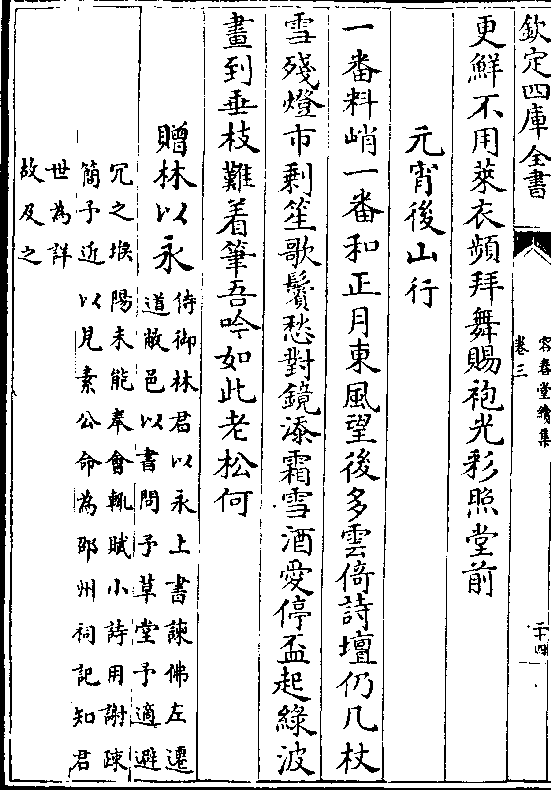 欽定四庫全書
容春堂續集
卷三
二十四
更鮮不用萊衣頻拜舞賜袍光彩照堂前
元宵後山行
一番料峭一番和正月東風望後多雲倚詩壇仍几杖
雪殘燈市剰笙歌鬢愁對鏡添霜雪酒愛停盃起綠波
畫到垂枝難着筆吾吟如此老松何
贈林以永
侍御林君以永上書諫佛左遷
道敝邑以書問予草堂予適避
冗之堠陽未能奉會輒賦小詩用謝疎
簡予近以見素公命為邵州祠記知君
世為詳
故及之